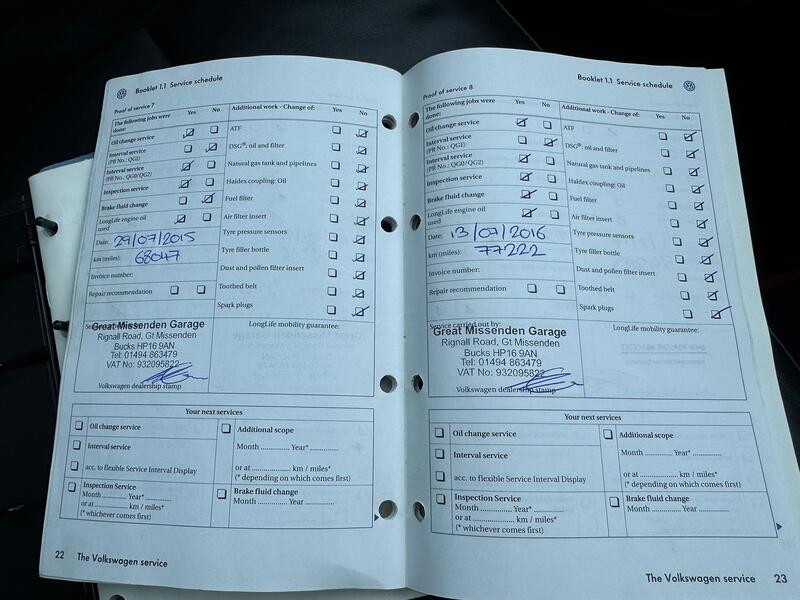 Booklet 1.1 Service schedule
Proof of service 7
The following jobs were done: Yes No
Oil change service
Interval service
(PR No.: QG1)
Interval service
(PR No.: QG0/QG2)
Inspection service
Brake fluid change
LongLife engine oil
used
Date: 29/07/2015
km (miles): 68047
Invoice number:
Repair recommendation
Additional work - Change of: Yes No
ATF
DSG®: oil and filter
Natural gas tank and pipelines
Haldex coupling: Oil
Fuel filter
Air filter insert
Tyre pressure sensors
Tyre filler bottle
Dust and pollen filter insert
Toothed belt
Spark plugs
Great Missenden Garage
Rignall Road, Gt Missenden
Bucks HP16 9AN
Tel: 01494 863479
VAT No: 932095822
Volkswagen dealership stamp
LongLife mobility guarantee:
Your next services
Oil change service
Interval service
acc. to flexible Service Interval Display
Inspection Service
Month ............ Year* ............
or at .................... km / miles*
(* whichever comes first)
Additional scope
Month ............ Year* ............
or at .................... km / miles*
(* depending on which comes first)
Brake fluid change
Month ............ Year ............
22 The Volkswagen service
Booklet 1.1 Service schedule
Proof of service 8
The following jobs were done: Yes No
Oil change service
Interval service
(PR No.: QG1)
Interval service
(PR No.: QG0/QG2)
Inspection service
Brake fluid change
LongLife engine oil
used
Date: 13/07/2016
km (miles): 77222
Invoice number:
Repair recommendation
Additional work - Change of: Yes No
ATF
DSG®: oil and filter
Natural gas tank and pipelines
Haldex coupling: Oil
Fuel filter
Air filter insert
Tyre pressure sensors
Tyre filler bottle
Dust and pollen filter insert
Toothed belt
Spark plugs
Service carried out by:
Great Missenden Garage
Rignall Road, Gt Missenden
Bucks HP16 9AN
Tel: 01494 863479
VAT No: 932095822
Volkswagen dealership stamp
LongLife mobility guarantee:
Your next services
Oil change service
Interval service
acc. to flexible Service Interval Display
Inspection Service
Month ............ Year* ............
or at .................... km / miles*
(* whichever comes first)
Additional scope
Month ............ Year* ............
or at .................... km / miles*
(* depending on which comes first)
Brake fluid change
Month ............ Year ............
The Volkswagen service 23